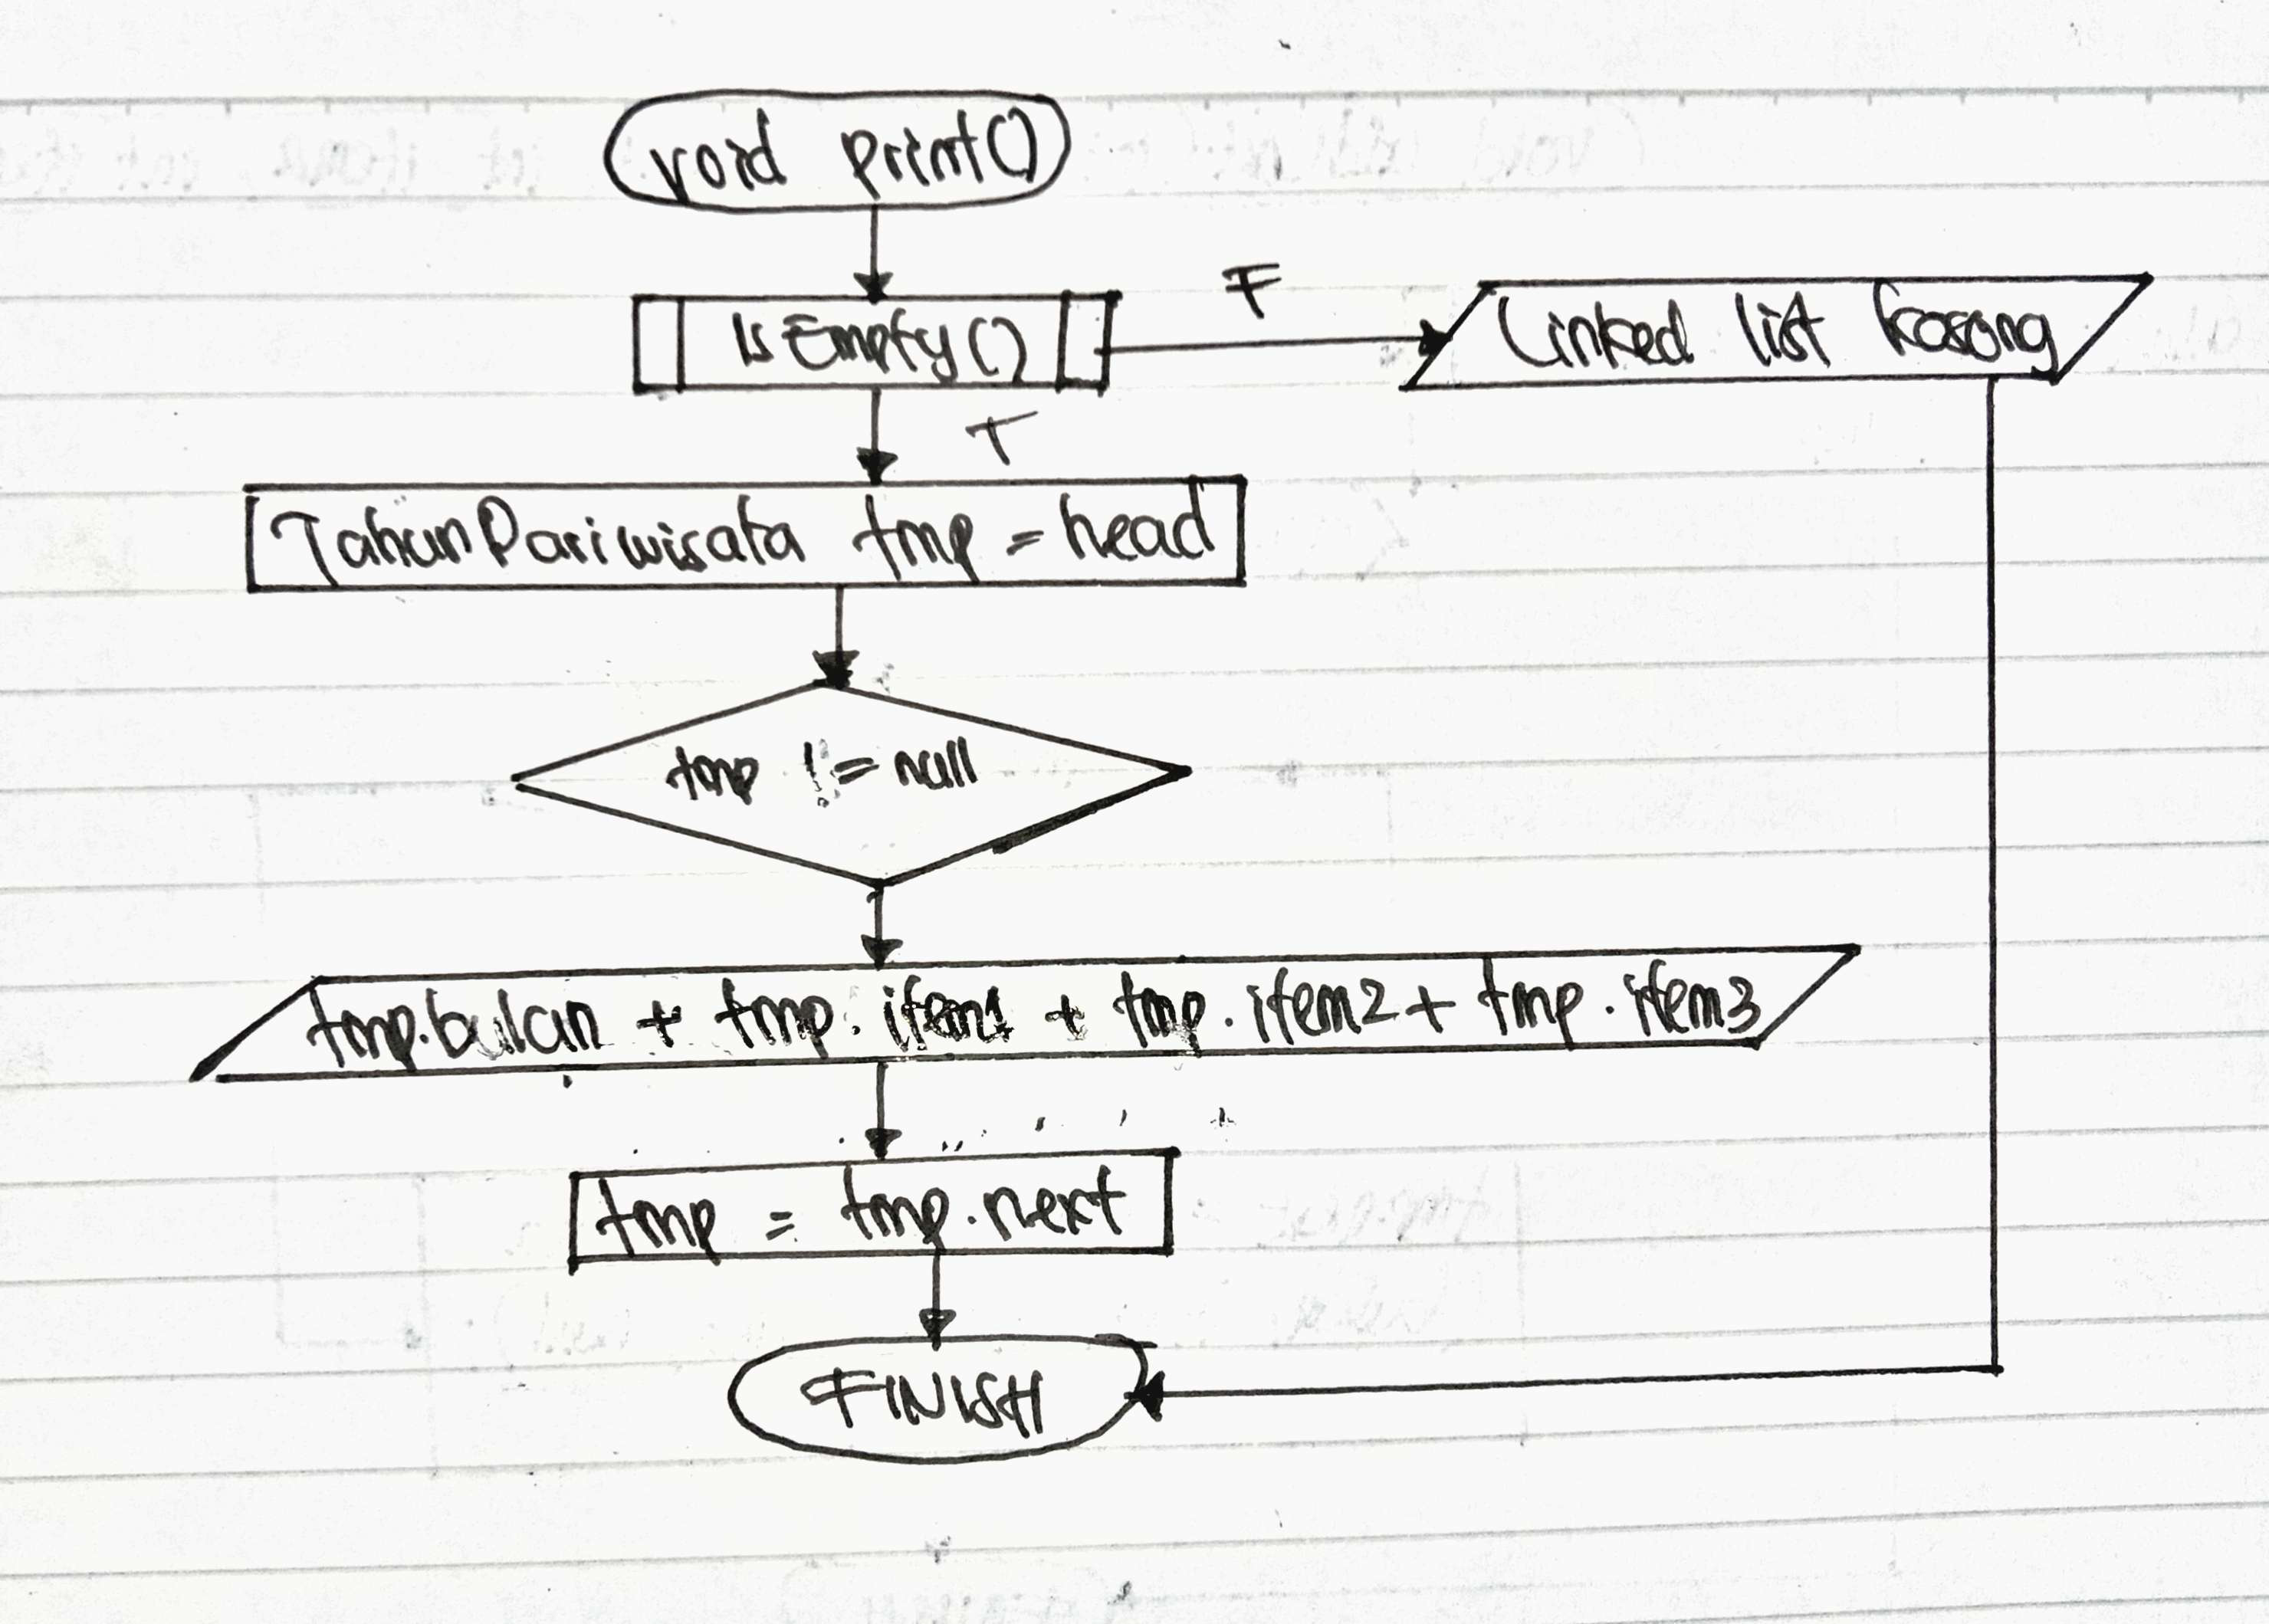 void print()
IsEmpty()
F
Linked list kosong
T
TahunPariwisata tmp = head
tmp != null
tmp.bulan + tmp.item1 + tmp.item2 + tmp.item3
tmp = tmp.next
FINISH